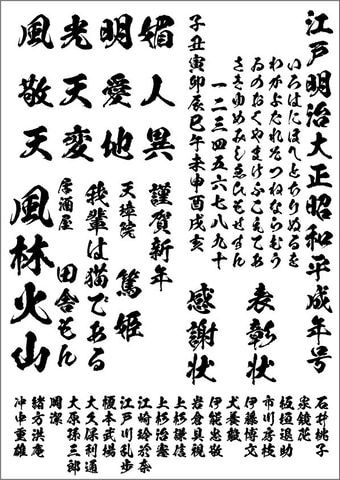 江戸明治大正昭和平成年号
いろはにほへとちりぬるを
わかよたれそつねならむう
ゐのおくやまけふこえてあ
さきゆめみしゑひもせすん
一二三四五六七八九十
子丑寅卯辰巳午未申酉戌亥
表彰状
感謝状
媚人異
明愛他
光天変
風敬天
謹賀新年
天璋院
篤姫
我輩は猫である
居酒屋
田舎もん
風林火山
石井桃子
泉鏡花
板垣退助
市川房枝
伊藤博文
犬養毅
伊能忠敬
岩倉具視
上杉謙信
上杉治憲
江崎玲於奈
江戸川乱歩
榎本武揚
大久保利通
大原孫三郎
岡潔
緒方洪庵
沖中重雄